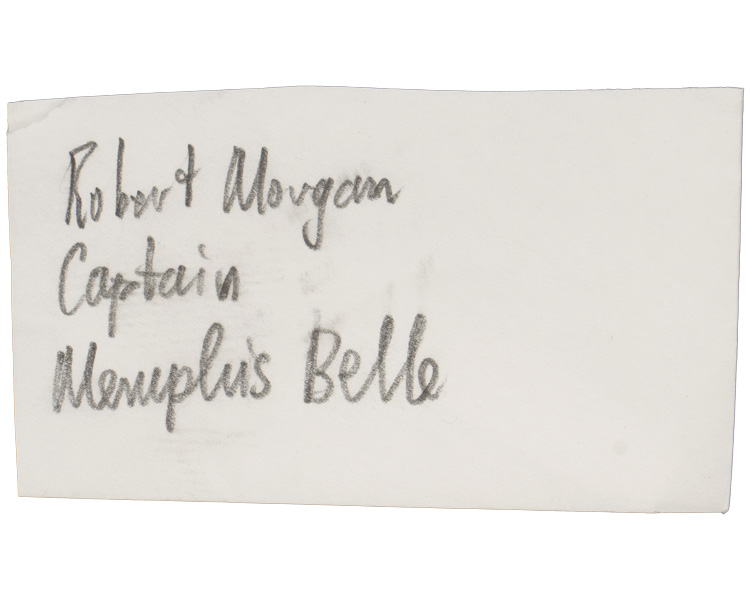 Robert Morgan
Captain
Memphis Belle